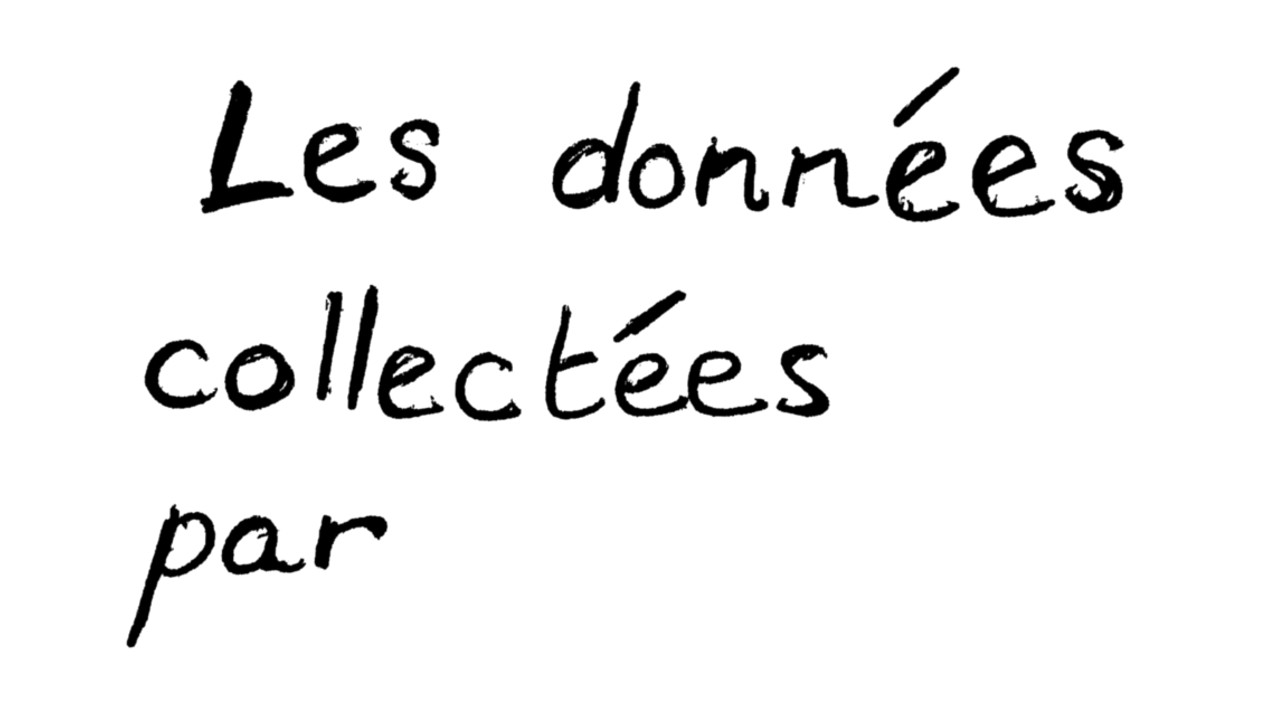 Les données
collectées
par